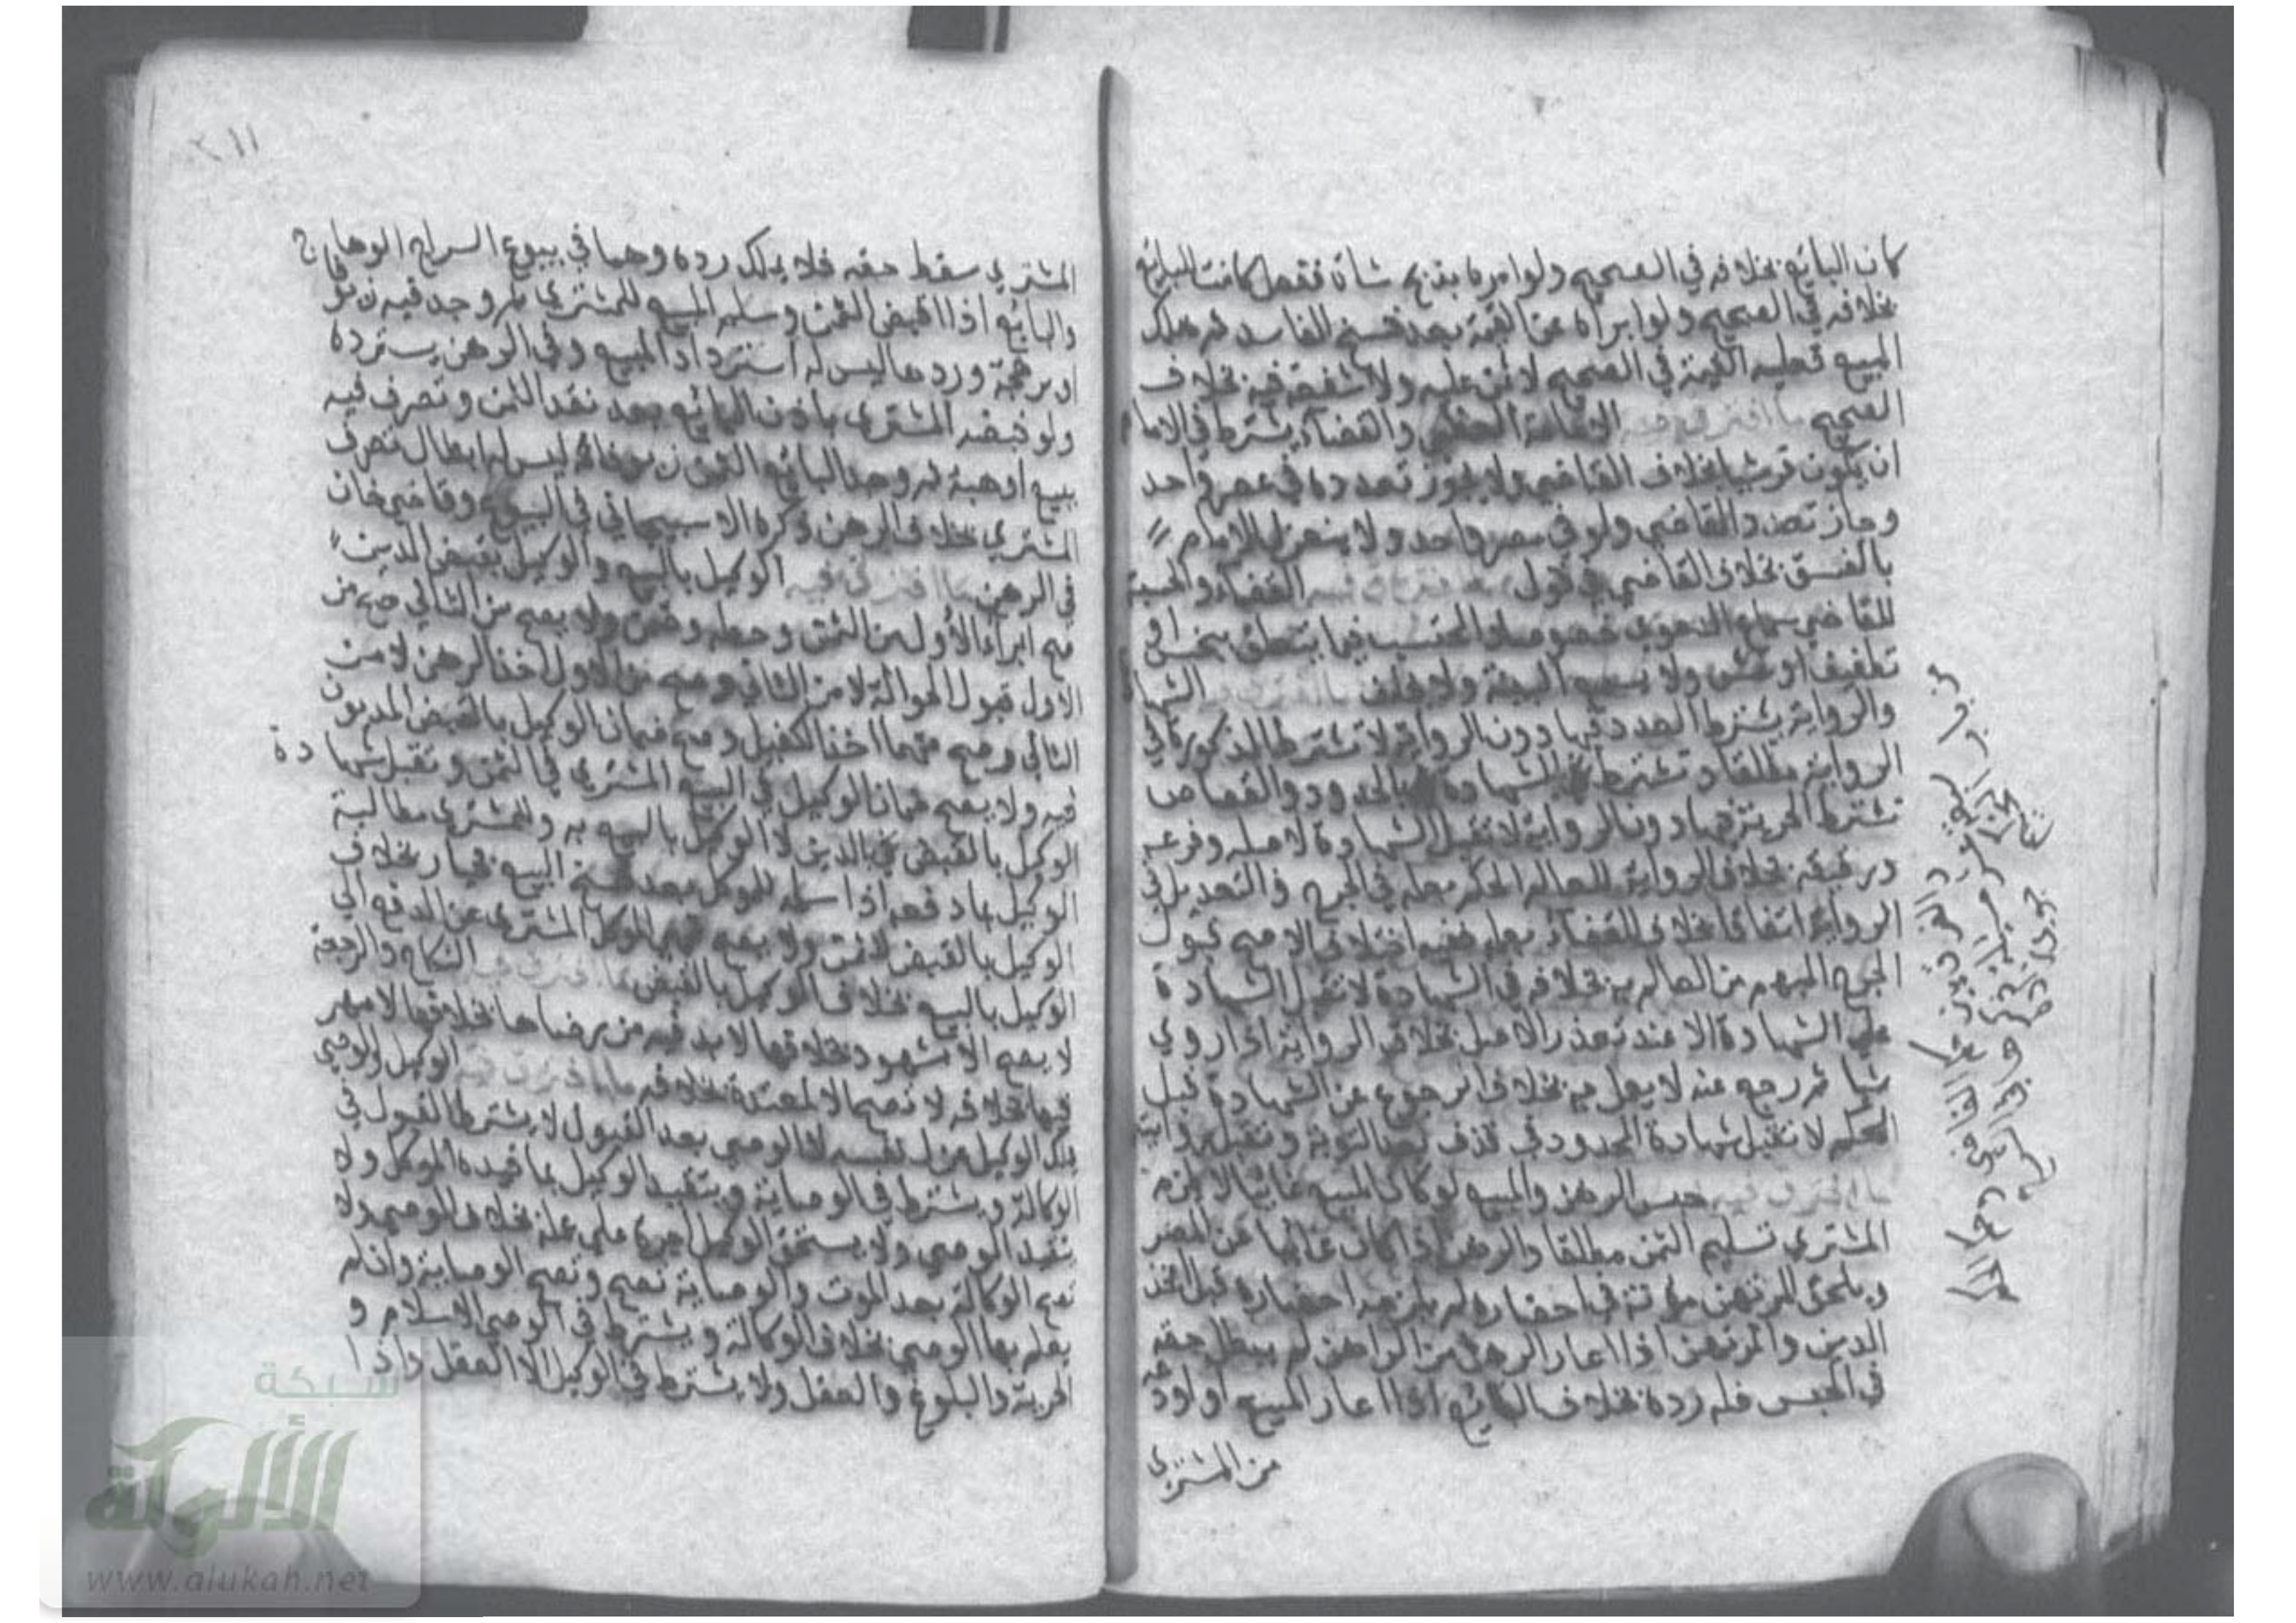 كان البائع بخلافه في الصحيح ولو امره بذبح شاة ففعل كانت للبائع
بخلافه في الصحيح ولو ابراه عن القيمة بعد فسخ الفاسد ثم هلك
المبيع فعليه القيمة في الصحيح لا ثمن عليه ولا شفعة فيه بخلاف
الصحيح ما افترق فيه الامامة العظمى والقضاء يشترط في الامام
ان يكون قرشيا بخلاف القاضي ولا يجوز تعدده في عصر واحد
وجاز تعدد القاضي ولو في مصر واحد ولا ينعزل الامام
بالفسق بخلاف القاضي في قول ما افترق فيه القضاء والحسبة
للقاضي سماع الدعوى عموما والمحتسب فيما يتعلق ببخس او
تطفيف او غش ولا يسمع البينة ولا يحلف ما افترق فيه الشهادة
والرواية يشترط العدد فيها دون الرواية لا تشترط الذكورة في
الرواية مطلقا وتشترط في الشهادة بالحدود والقصاص
تشترط الحرية فيها دون الرواية لا تقبل الشهادة لاصله وفرعه
ورقيقه بخلاف الرواية للعالم الحكم بعلمه في الجرح والتعديل في
الرواية اتفاقا بخلاف القضاء بعلمه ففيه اختلاف الاصح قبول
الجرح المبهم من العالم به بخلافه في الشهادة لا تقبل الشهادة
على الشهادة الا عند تعذر الاصل بخلاف الرواية اذا روي
شيا ثم رجع عنه لا يعمل به بخلاف الرجوع عن الشهادة قبل
الحكم لا تقبل شهادة المحدود في قذف بعد التوبة وتقبل روايته
ما افترق فيه حبس الرهن والمبيع لو كان المبيع غائبا لا يلزم
المشتري تسليم الثمن مطلقا والرهن اذا كان غائبا عن المصر
ويلحق المرتهن مؤنة في احضاره لم يلزمه احضاره قبل اخذ
الدين والمرتهن اذا اعار الرهن من الراهن لم يبطل حقه
في الحبس فله رده بخلاف البائع اذا اعار المبيع او اودعه
من المشتري
المشتري سقط حقه فلا يملك رده وهما في بيوع السراج الوهاج
والبائع اذا قبض الثمن وسلم المبيع للمشتري ثم وجد فيه زيوفا
او نبهرجة وردها ليس له استرداد المبيع وفي الرهن يسترده
ولو قبضه المشتري باذن البائع بعد نقد الثمن وتصرف فيه
ببيع او هبة ثم وجد البائع الثمن زيوفا ليس له ابطال تصرف
المشتري بخلاف الرهن ذكره الاسبيجابي في البيوع وقاضي خان
في الرهن ما افترق فيه الوكيل بالبيع والوكيل بقبض الدين
صح ابراء الأول من الثمن وحطه ولا يصح من الثاني صح من
الاول قبول الحوالة لا من الثاني وصح من الاول اخذ الرهن لا من
الثاني وصح منهما اخذ الكفيل وصح ضمان الوكيل بالقبض المديون
فيه ولا يصح ضمان الوكيل في البيع المشتري في الثمن وتقبل شهادة
الوكيل بالقبض بالدين لا الوكيل بالبيع به وللمشتري مطالبة
الوكيل بما دفعه اذا سلمه للموكل بعد فسخ البيع بخيار بخلاف
الوكيل بالقبض ولا يصح نهي الموكل المشتري عن الدفع الى
الوكيل بالبيع بخلاف الوكيل بالقبض ما افترق فيه النكاح والرجعة
لا يصح الا بشهود بخلافها لا بد فيه من رضاها بخلافها لا مهر
فيها بخلافه لا تصح الا لمعتدة بخلافه ما افترق فيه الوكيل والوصي
يملك الوكيل عزل نفسه لا الوصي بعد القبول لا يشترط القبول في
الوكالة ويشترط في الوصاية ويتقيد الوكيل بما قيده الموكل ولا
يتقيد الوصي ولا يستحق الوكيل اجرة على عمله بخلاف الوصي ولا
تصح الوكالة بعد الموت والوصاية تصح وتصح الوصاية وان لم
يعلم بها الوصي بخلاف الوكالة ويشترط في الوصي الاسلام و
الحرية والبلوغ والعقل ولا يشترط في الوكيل الا العقل واذا
شبكة
الألوكة
www.alukah.net